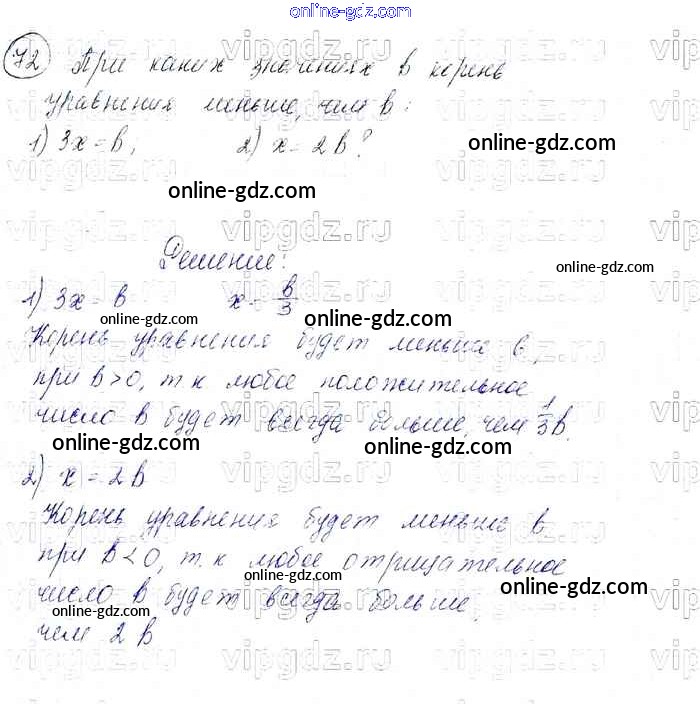 online-gdz.com
72 При каких значениях b корень
уравнения меньше, чем b:
1) 3x = b, 2) x = 2b?
online-gdz.com
online-gdz.com
Решение:
online-gdz.com
1) 3x = b x = b/3
online-gdz.com online-gdz.com
Корень уравнения будет меньше b,
при b>0, т.к любое положительное
число b будет всегда больше, чем 1/3 b.
online-gdz.com online-gdz.com
2) x = 2b
Корень уравнения будет меньше b
при b<0, т.к любое отрицательное
online-gdz.com online-gdz.com
число b будет всегда больше,
online-gdz.com
чем 2b
vipgdz.ru